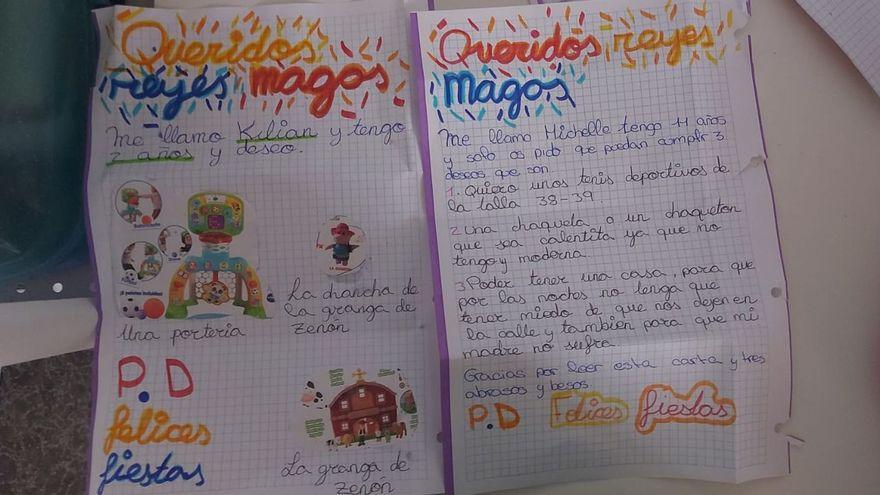 Queridos
reyes magos
Me llamo Kilian y tengo
2 años y deseo.
Una porteria
La chancha de
la granga de
zenón
P.D
felices
fiestas
La granga de
zenón
Queridos reyes
Magos
Me llamo Michelle tengo 11 años
y solo os pido que puedan cumplir 3
deseos que son
1. Quiero unos tenis deportivos de
la talla 38-39.
2. una chaqueta o un chaqueton
que sea calentita ya que no
tengo y moderna.
3. Poder tener una casa, para que
por las noches no tenga que
tener miedo de que nos dejen en
la calle y tambien para que mi
madre no sufra.
Gracias por leer esta carta y tres
abrasos y besos.
P.D Felices fiestas